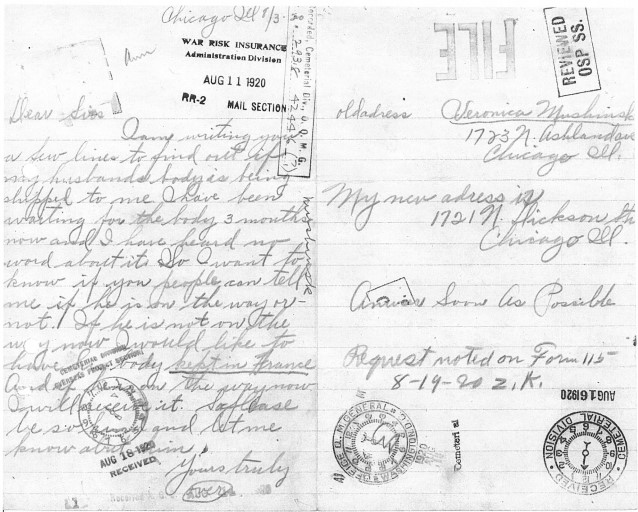 Chicago Ill 8/3-
WAR RISK INSURANCE
Administration Division
AUG 11 1920
RR-2 MAIL SECTION
Dear Sirs
I am writing you
a few lines to find out if
my husbands body is being
shipped to me I have been
waiting for the body 3 months
now and I have heard no
word about it. So I want to
know if you people can tell
me if he is on the way or
not. If he is not on the
way now I would like to
have body kept in France
And on the way now
I will receive it.
be so kind and let me
know about him.
Yours truly
CEMETERIAL DIVISION
AUG 18 1920
RECEIVED
FILE
REVIEWED
OSP SS.
old adress Veronica
1723 N. Ashland ave
Chicago Ill.
My new adress is
1721 N. St
Chicago Ill.
Answer Soon As Possible
Request noted on Form 115-
8-19-20 Z.K.
AUG 16 1920
CEMETERIAL DIVISION
RECEIVED
OFFICE Q. M. GENERAL
WASHINGTON
1920
Cemeterial